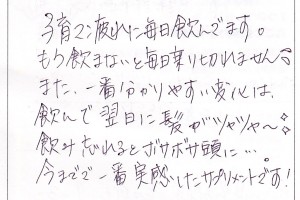 子育て疲れに毎日飲んでます。
もう飲まないと毎日乗り切れません
また、一番分かりやすい変化は、
飲んで翌日に髪がツヤツヤ〜
飲み忘れるとボサボサ頭に…
今までで一番実感したサプリメントです!